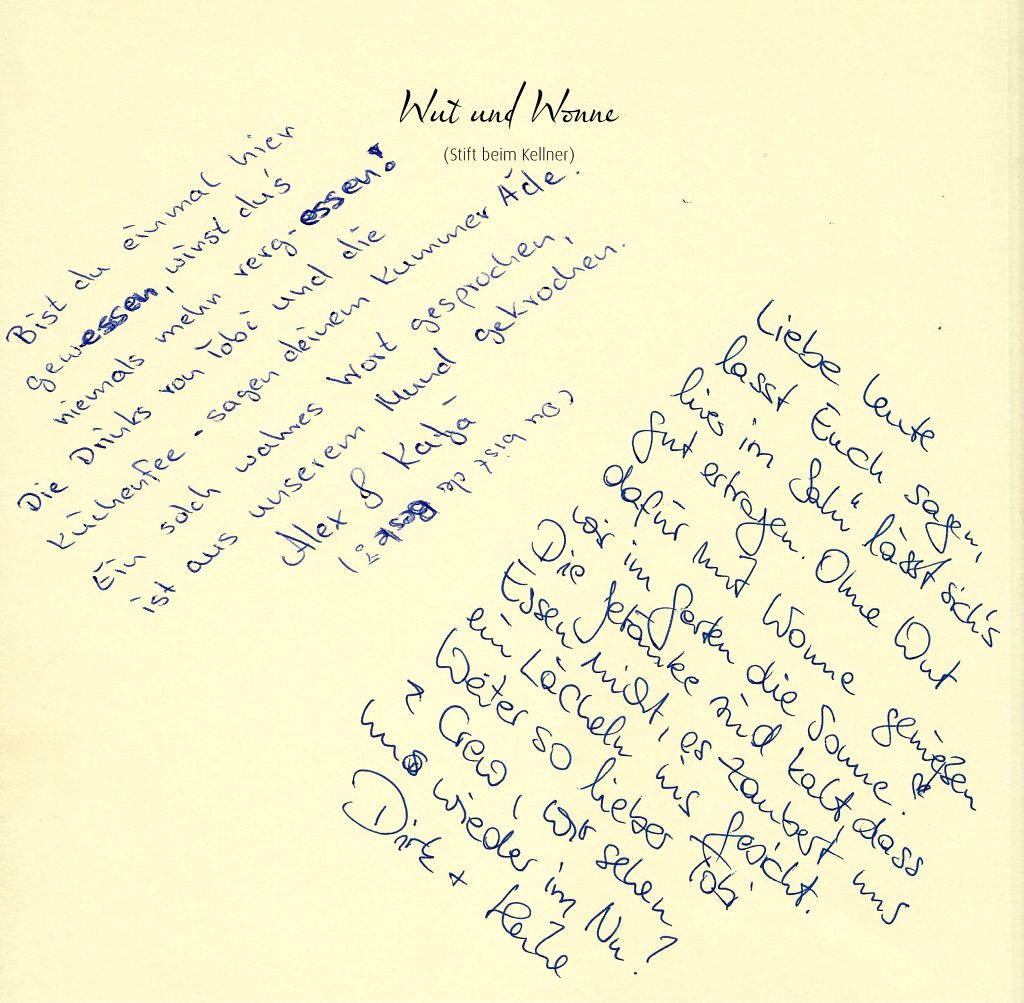 Wut und Wonne
(Stift beim Kellner)
Bist du einmal hier
gewessen, wirst du's
niemals mehr verg-essen!
Die Drinks von Tobi und die
Küchenfee - sagen deinem Kummer Ade.
Ein solch wahres Wort gesprochen,
ist aus unserem Mund gekrochen.
Alex & Katja
(Du bist de Beste!)
Liebe Leute
lasst Euch sagen,
hier im "Sahn" lässt sich's
gut ertragen. Ohne Wut
dafür mit Wonne genießen
wir im Garten die Sonne.
Die Getränke sind kalt dass
Essen nicht, es zaubert uns
ein Lächeln ins Gesicht.
Weiter so lieber Tobi
& Crew, wir sehen
uns wieder im Nu!
Dirk +